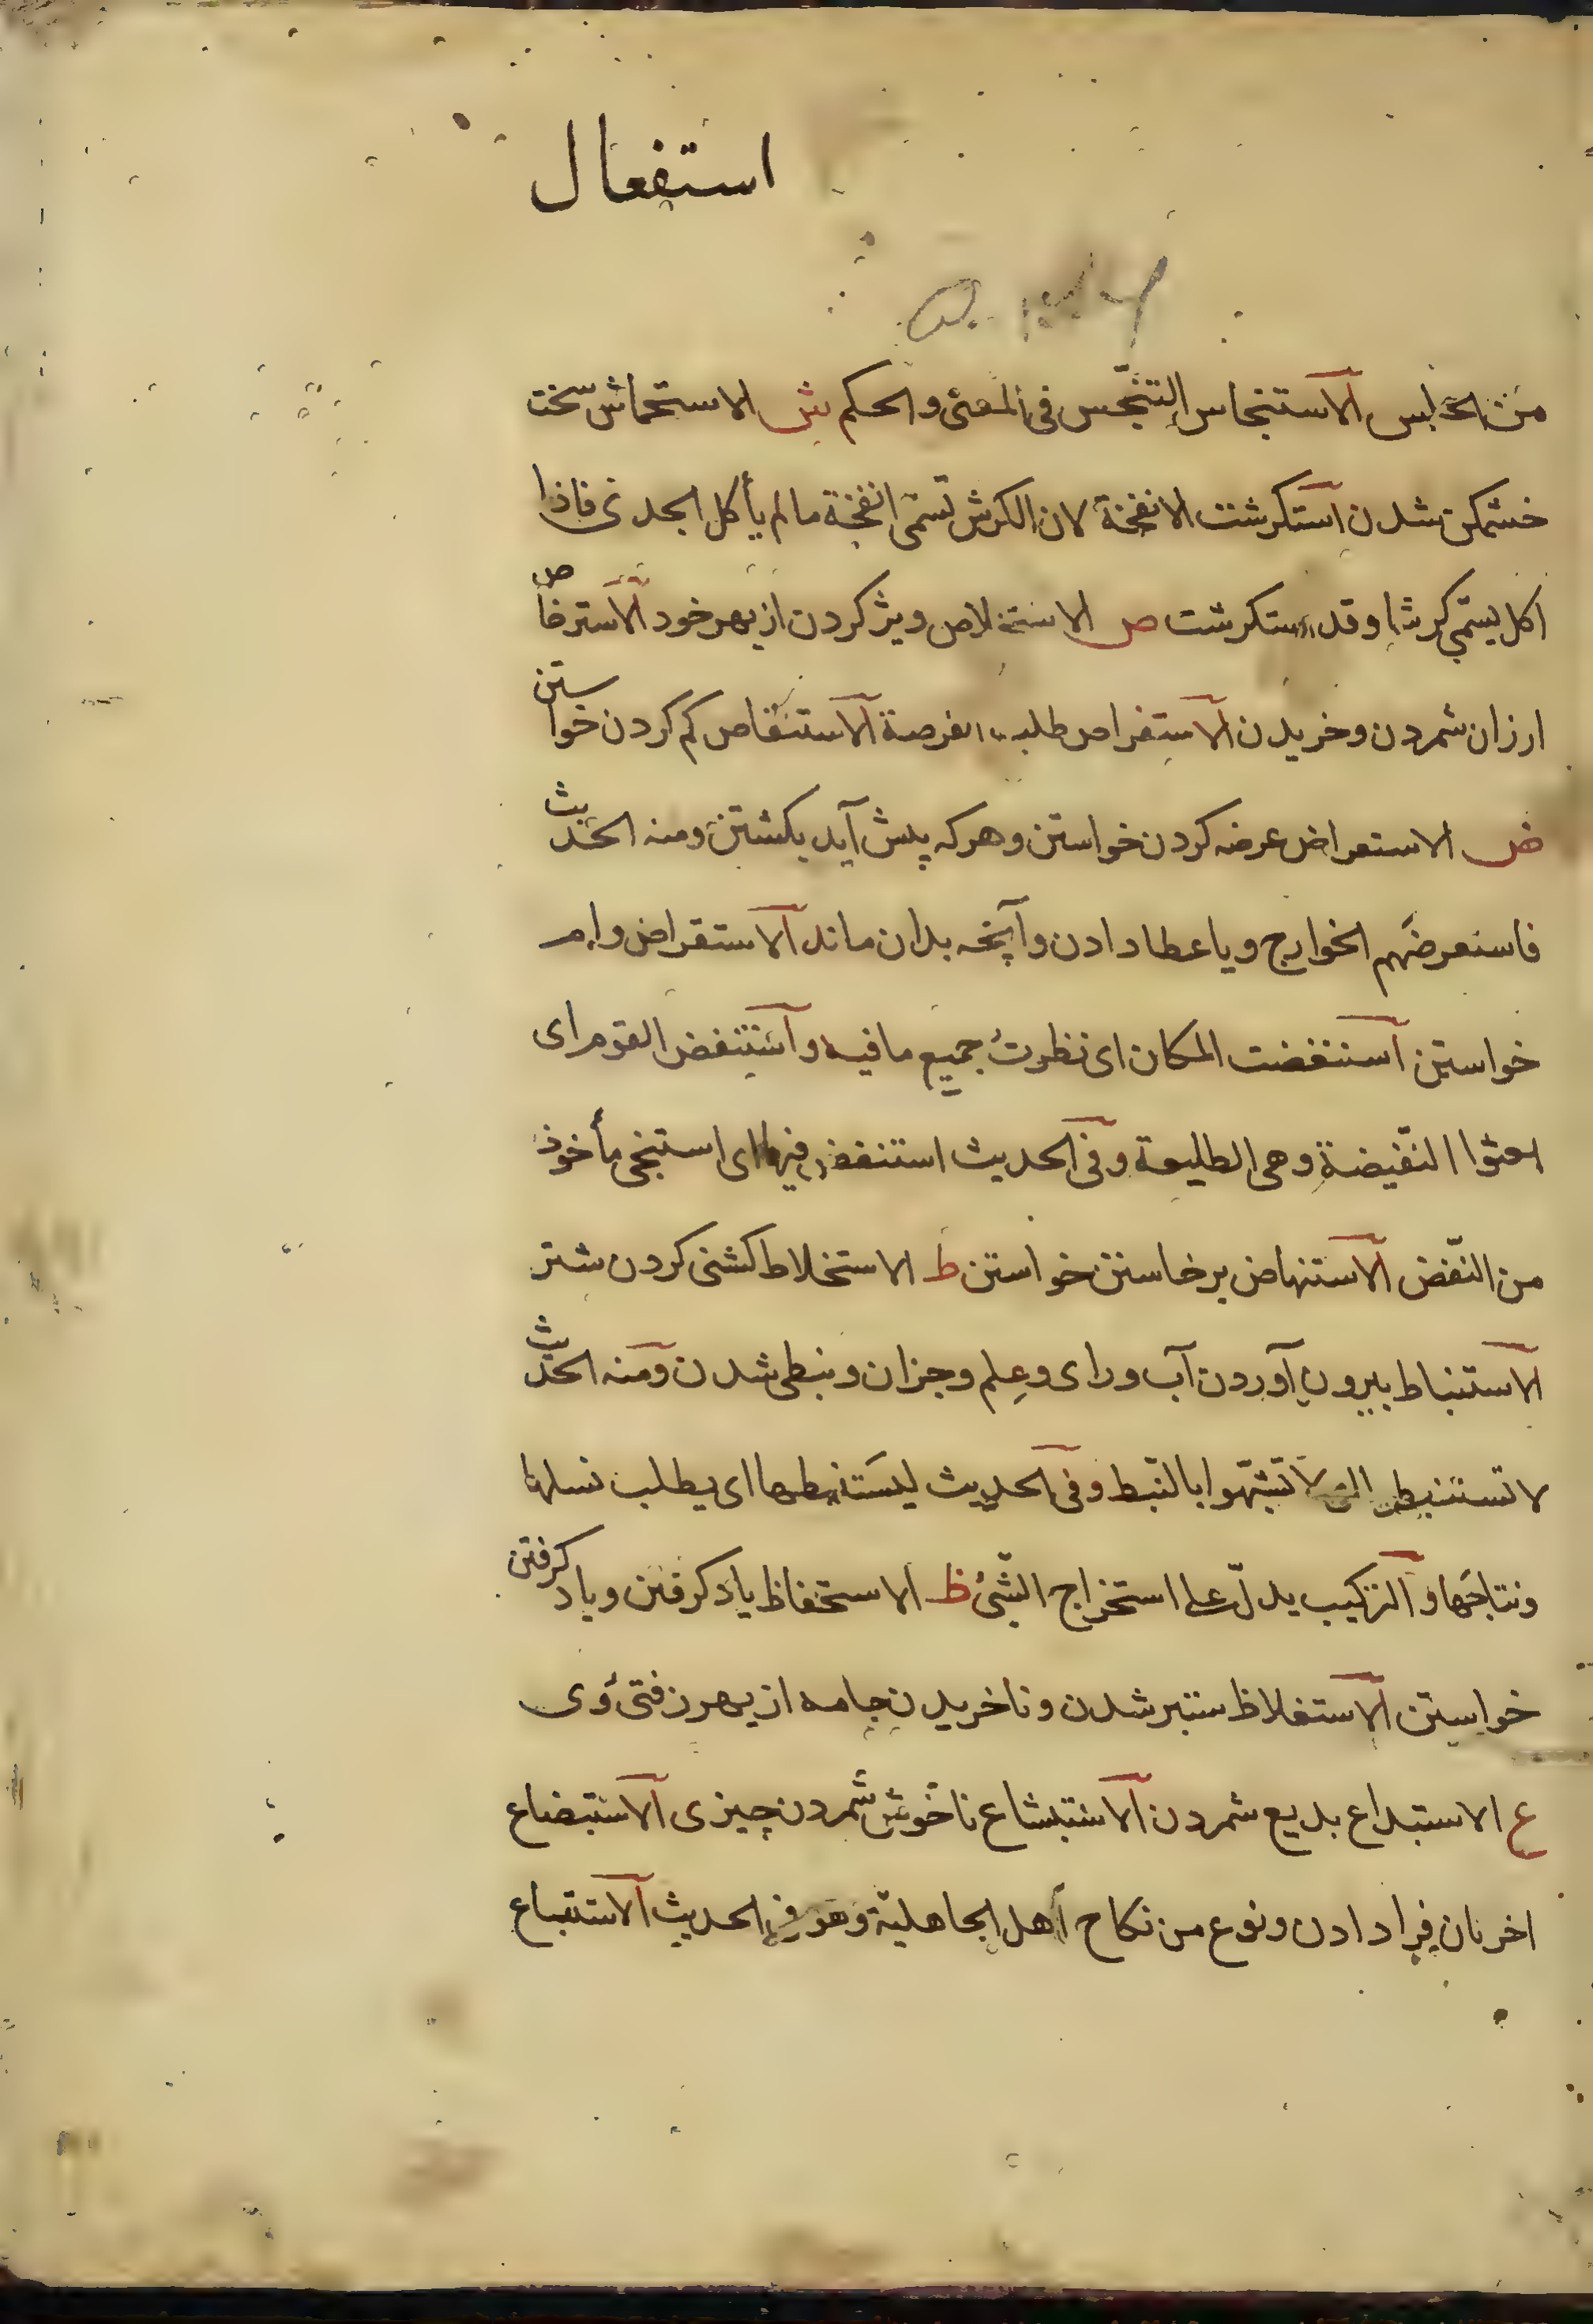 استفعال
من الحلس الاستنجاس التنجّس فى المعنى والحكم ش الاستحماش سخت
خشمكن شدن استكرشت الانفحة لان الكرش تسمّى انفخة مالم يأكل الجدى فاذا
اكل يسمّي كرشا وقد استكرشت ص الاستخلاص ويژ كردن از بهر خود الاسترخاص
ارزان شمردن وخريدن الاستفراص طلب الفرصة الاستنقاص كم كردن خواستن
ض الاستعراض عرضه كردن خواستن وهركه پيش آيد بكشتن ومنه الحديث
فاستعرضهم الخوارج وياعطا دادن وآنچه بدان ماند الاستقراض وام
خواستن استنفضت المكان اى نظرتُ جميع ما فيه واستنفض القوم اى
بعثوا النّفيضة وهى الطليعة وفى الحديث استنفض اى استنجى مأخوذ
من النّفض الاستنهاض برخاستن خواستن ط الاستخلاط كشنى كردن شتر
الاستنباط بيرون آوردن آب وراى وعِلم وجزان ونبطى شدن ومنه الحديث
لا تستنبطوا لا تشبّهوا بالنّبط وفى الحديث ليستنبطها اى يطلب نسلها
ونتاجها والتركيب يدلّ على استخراج الشّئ ظ الاستحفاظ ياد كرفتن وياد كرفتن
خواستن الاستغلاظ ستبر شدن وناخريدن جامه از بهر زفتئ وى
ع الاستبداع بديع شمردن الاستبشاع ناخوش شمردن چيزى الاستبضاع
اخريان فرا دادن ونوع من نكاح أهل الجاهليّة وهو فى الحديث الاستتباع